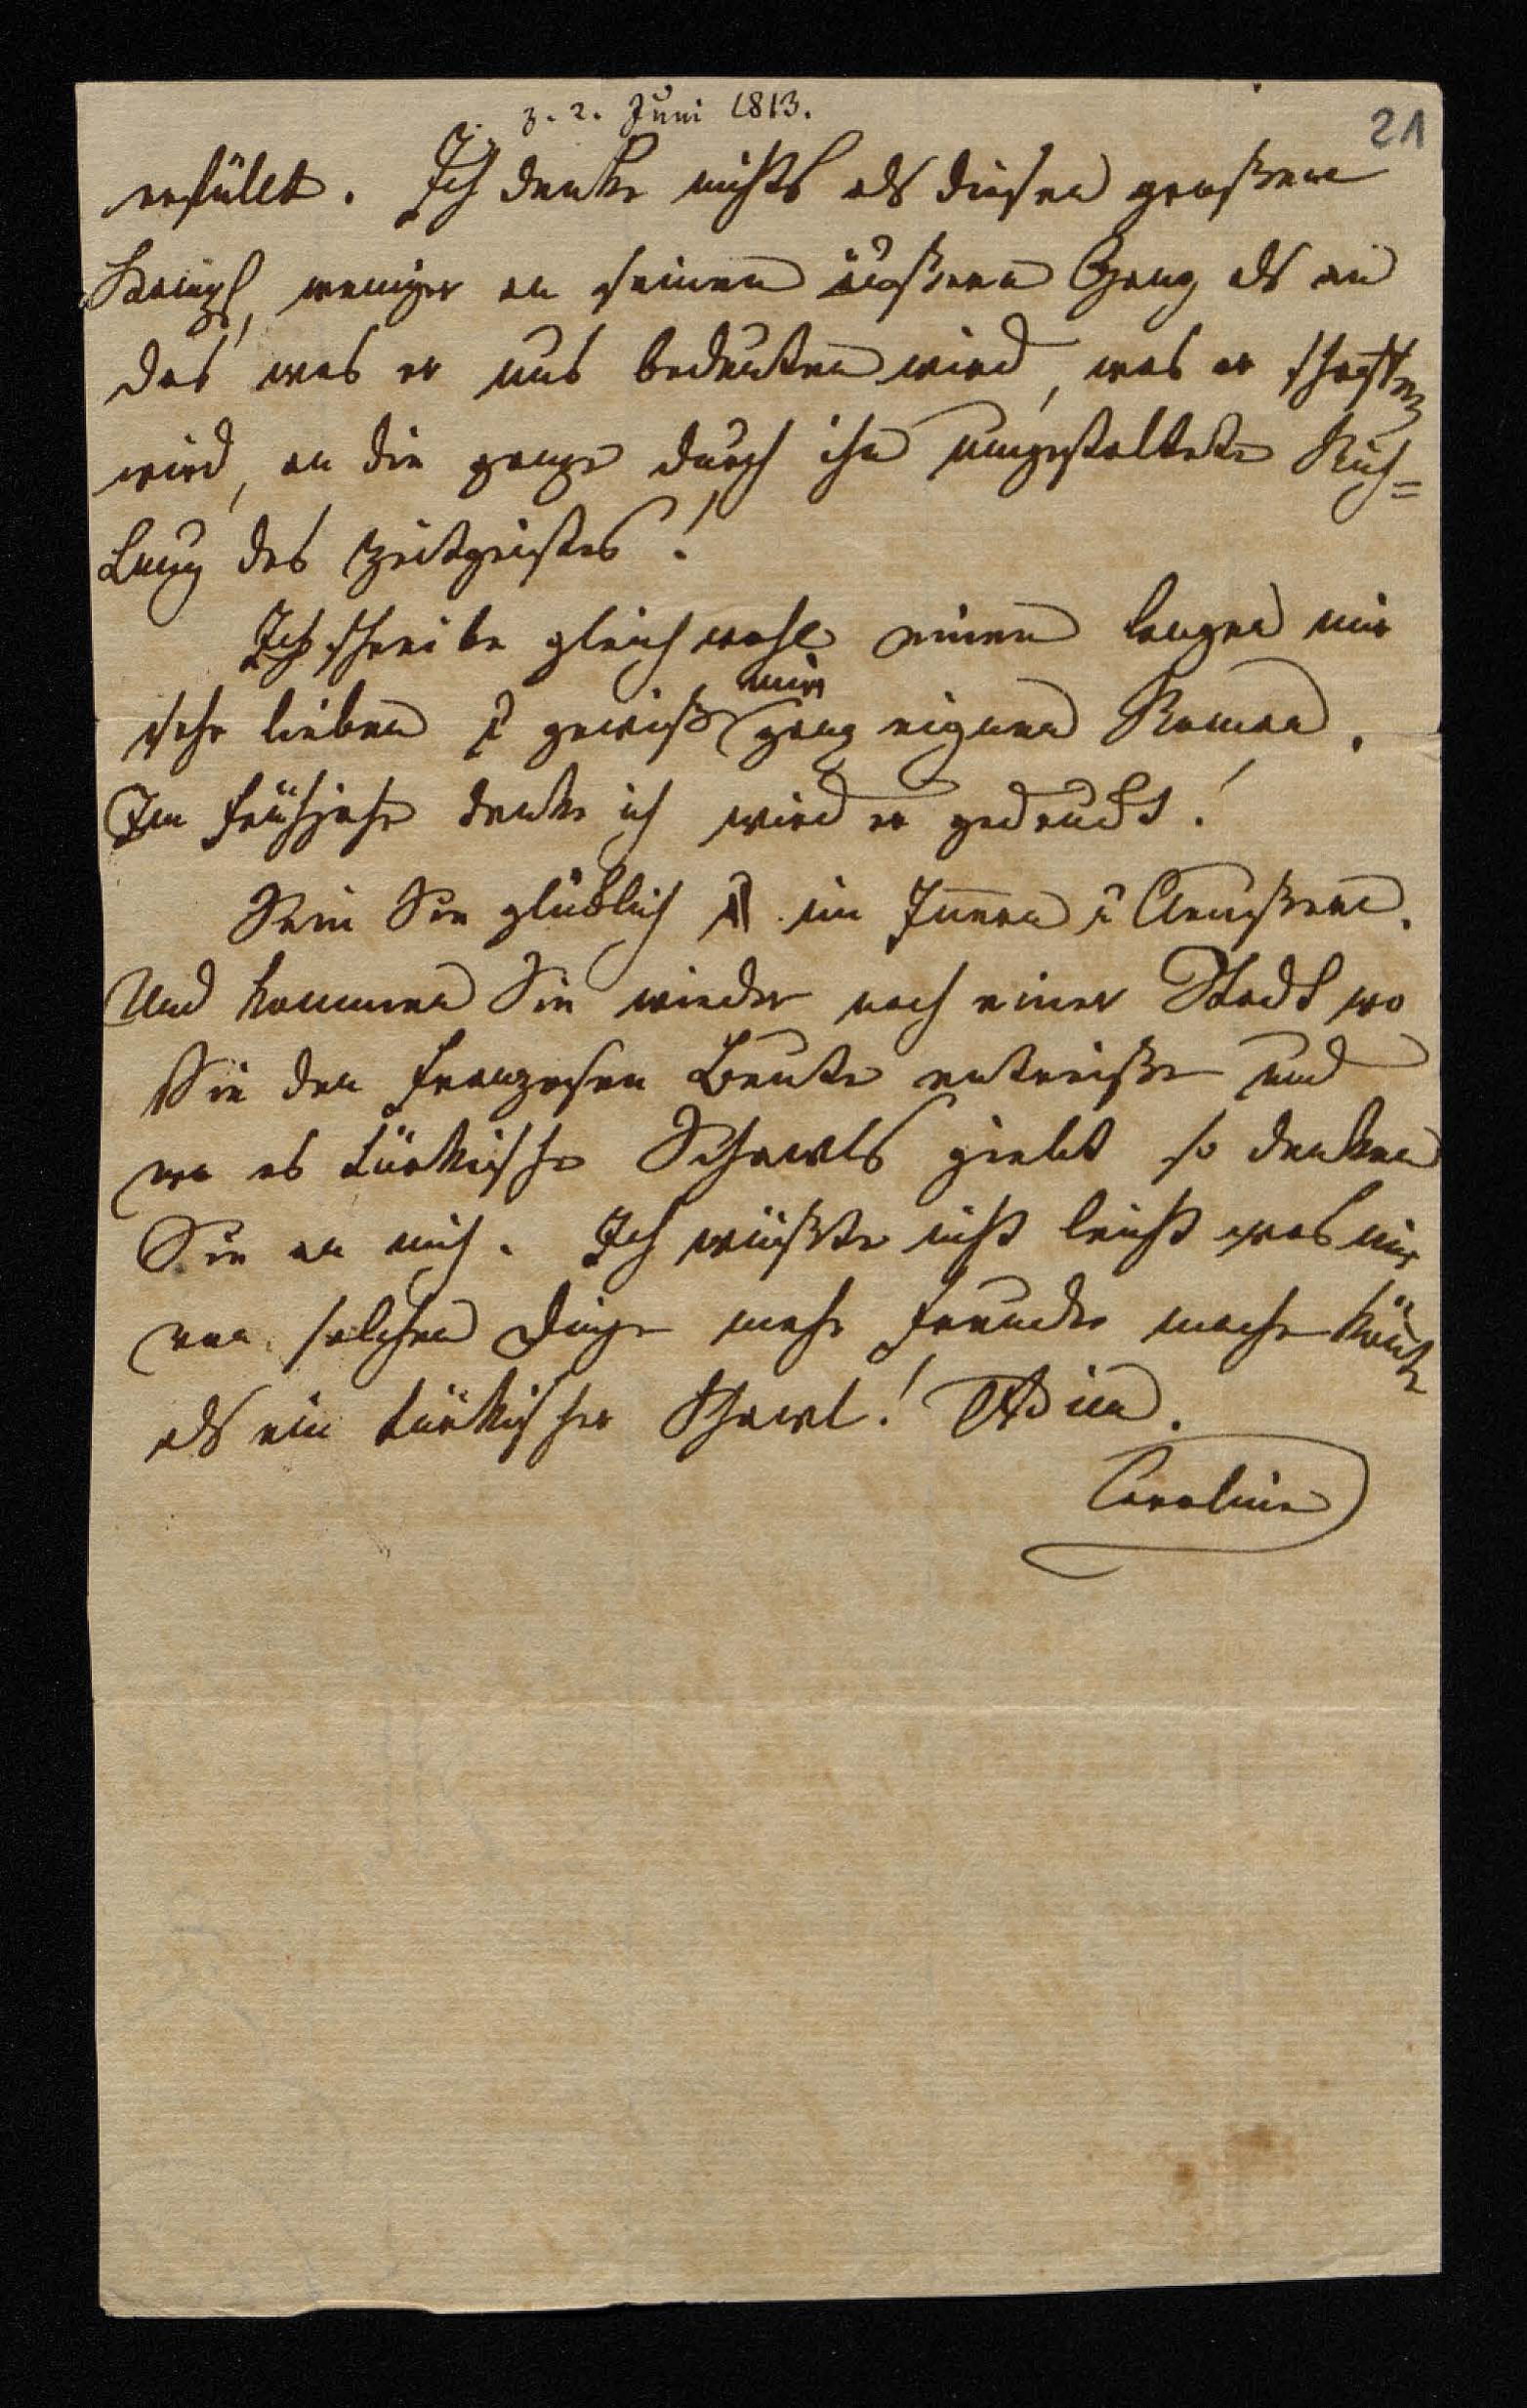 z. 2. Juni 1813.
21
erfüllt. Ich denke nichts als diesen großen
Kampf, weniger an seinen äußern Gang als an
das was er uns bedeuten wird, was er schaffen
wird, an die ganze durch ihn umgestaltete Rich=
tung des Zeitgeistes!
Ich schreibe gleichwohl einen langen mir
sehr lieben u gewiß mir ganz eignen Roman.
Im Frühjahr denke ich wird er gedruckt!
Sein Sie glücklich im Innern u Aeußern.
Und kommen Sie wieder nach einer Stadt wo
Sie den Franzosen Beute entreißen und
wo es türkische Schawls giebt so denken
Sie an mich. Ich wüßte nicht leicht was mir
von solchen Dingen mehr Freude machen könnte
als ein türkischer Schawl! Adieu.
Caroline